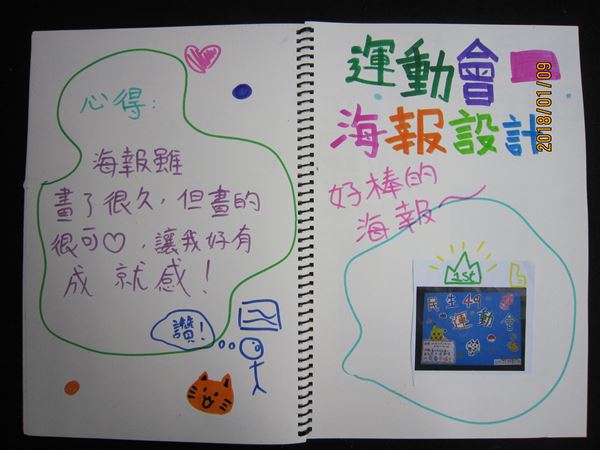 心得:
海報雖
畫了很久,但畫的
很可♡,讓我好有
成就感!
讚!
運動會
海報設計
好棒的
海報~
1st
民生49
運動會
2018/01/09